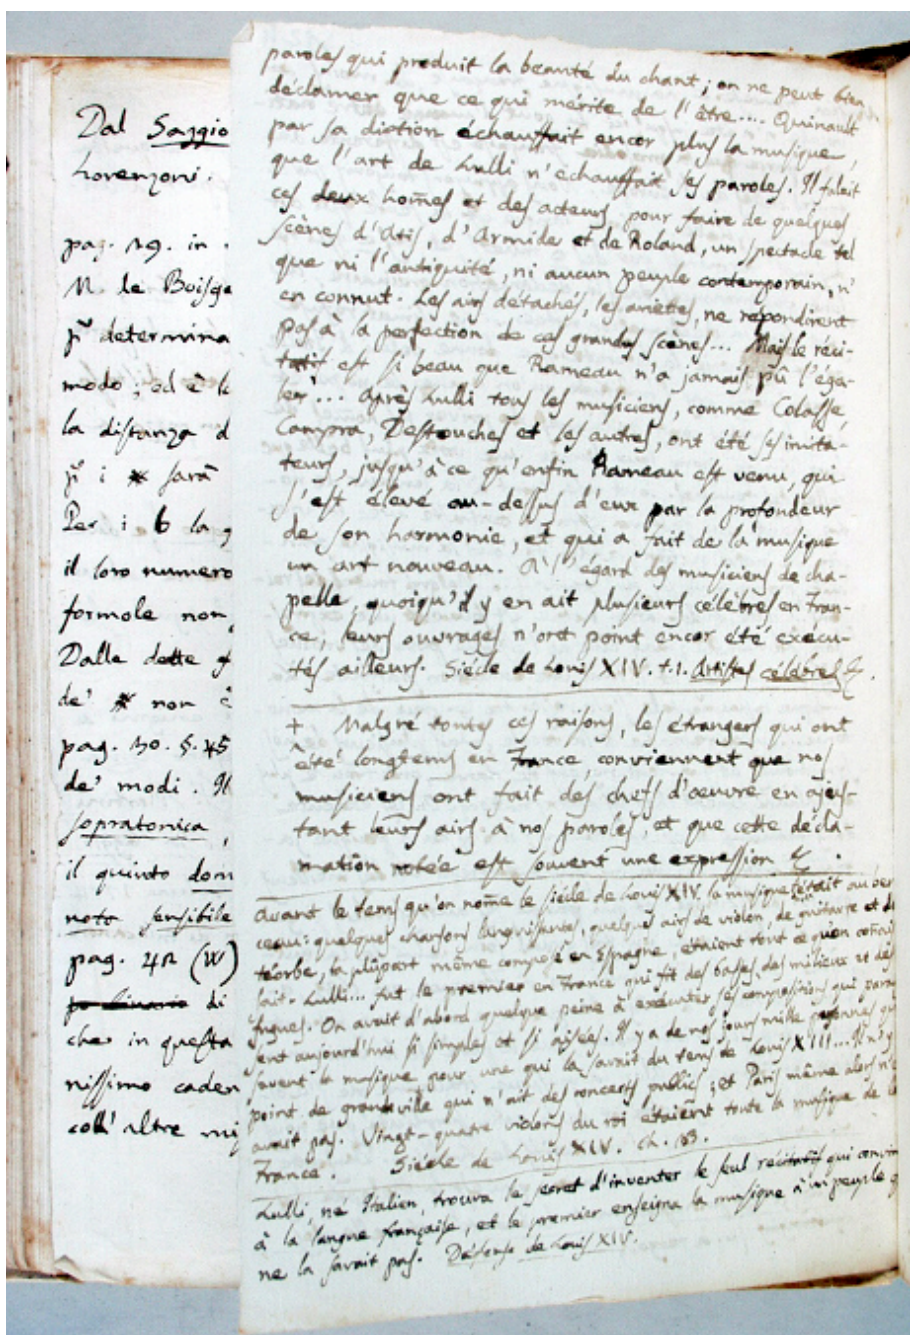 Dal Saggio
Lorenzoni.
pag. 29. in
M le Boisge
determina
modo; ed è l
la distanza d
i # sarà
Per i b la g
il loro numero
formole non
Dalle dette
de' # non è
pag. 30. §. 45
de' modi. Il
sopratonica,
il quinto dom
nota sensibile
pag. 42 (W)
di
che in questa
nissimo caden
coll' altre mi
paroles qui produit la beauté du chant; on ne peut bien
déclamer que ce qui mérite de l'être.... Quinault
par sa diction échauffait encor plus la musique,
que l'art de Lulli n'échauffait ses paroles. Il falait
ces deux hom̃es et des acteurs, pour faire de quelques
scènes d'Atis, d'Armide et de Roland, un spectacle tel
que ni l'antiquité, ni aucun peuple contemporain, n'
en connut. Les airs détachés, les ariettes, ne répondirent
pas à la perfection de ces grandes scènes... Mais le réci-
tatif est si beau que Rameau n'a jamais pû l'éga-
ler... Après Lulli tous les musiciens, comme Colasse,
Campra, Destouches et les autres, ont été ses imita-
teurs, jusqu'à ce qu'enfin Rameau est venu, qui
s'est élevé au-dessus d'eux par la profondeur
de son harmonie, et qui a fait de la musique
un art nouveau. A l'égard des musiciens de cha-
pelle, quoiqu'il y en ait plusieurs célèbres en Fran-
ce, leurs ouvrages n'ont point encor été exécu-
tés ailleurs. Siécle de Louis XIV. t.1. Artistes célebres &.
+ Malgré toutes ces raisons, les étrangers qui ont
été longtems en France, conviennent que nos
musiciens ont fait des chefs d'œuvre en ajus-
tant leurs airs à nos paroles, et que cette décla-
mation notée est souvent une expression &.
Avant le tems qu'on nom̃e le siécle de Louis XIV. la musique était au ber
ceau: quelques chansons languissantes, quelques airs de violon, de guitarre et de
téorbe, la plûpart même composés en Espagne, étaient tout ce qu'on con̄ais
sait. Lulli... fut le premier en France qui fit des basses, des milieux et des
fugues. On avait d'abord quelque peine à exécuter ses compositions qui parais
ent aujourd'hui si simples et si aisées. Il y a de nos jours mille personnes qui
savent la musique pour une qui la savait du tems de Louis XIII... Il n'y a
point de grande ville qui n'ait des concerts publics; et Paris même alors n'en
avait pas. Vingt-quatre violons du roi étaient toute la musique de la
France. Siécle de Louis XIV. ch. 33.
Lulli, né Italien, trouva le secret d'inventer le seul récitatif qui convint
à la langue française, et le premier enseigna la musique à un peuple q
ne la savait pas. Défense de Louis XIV.